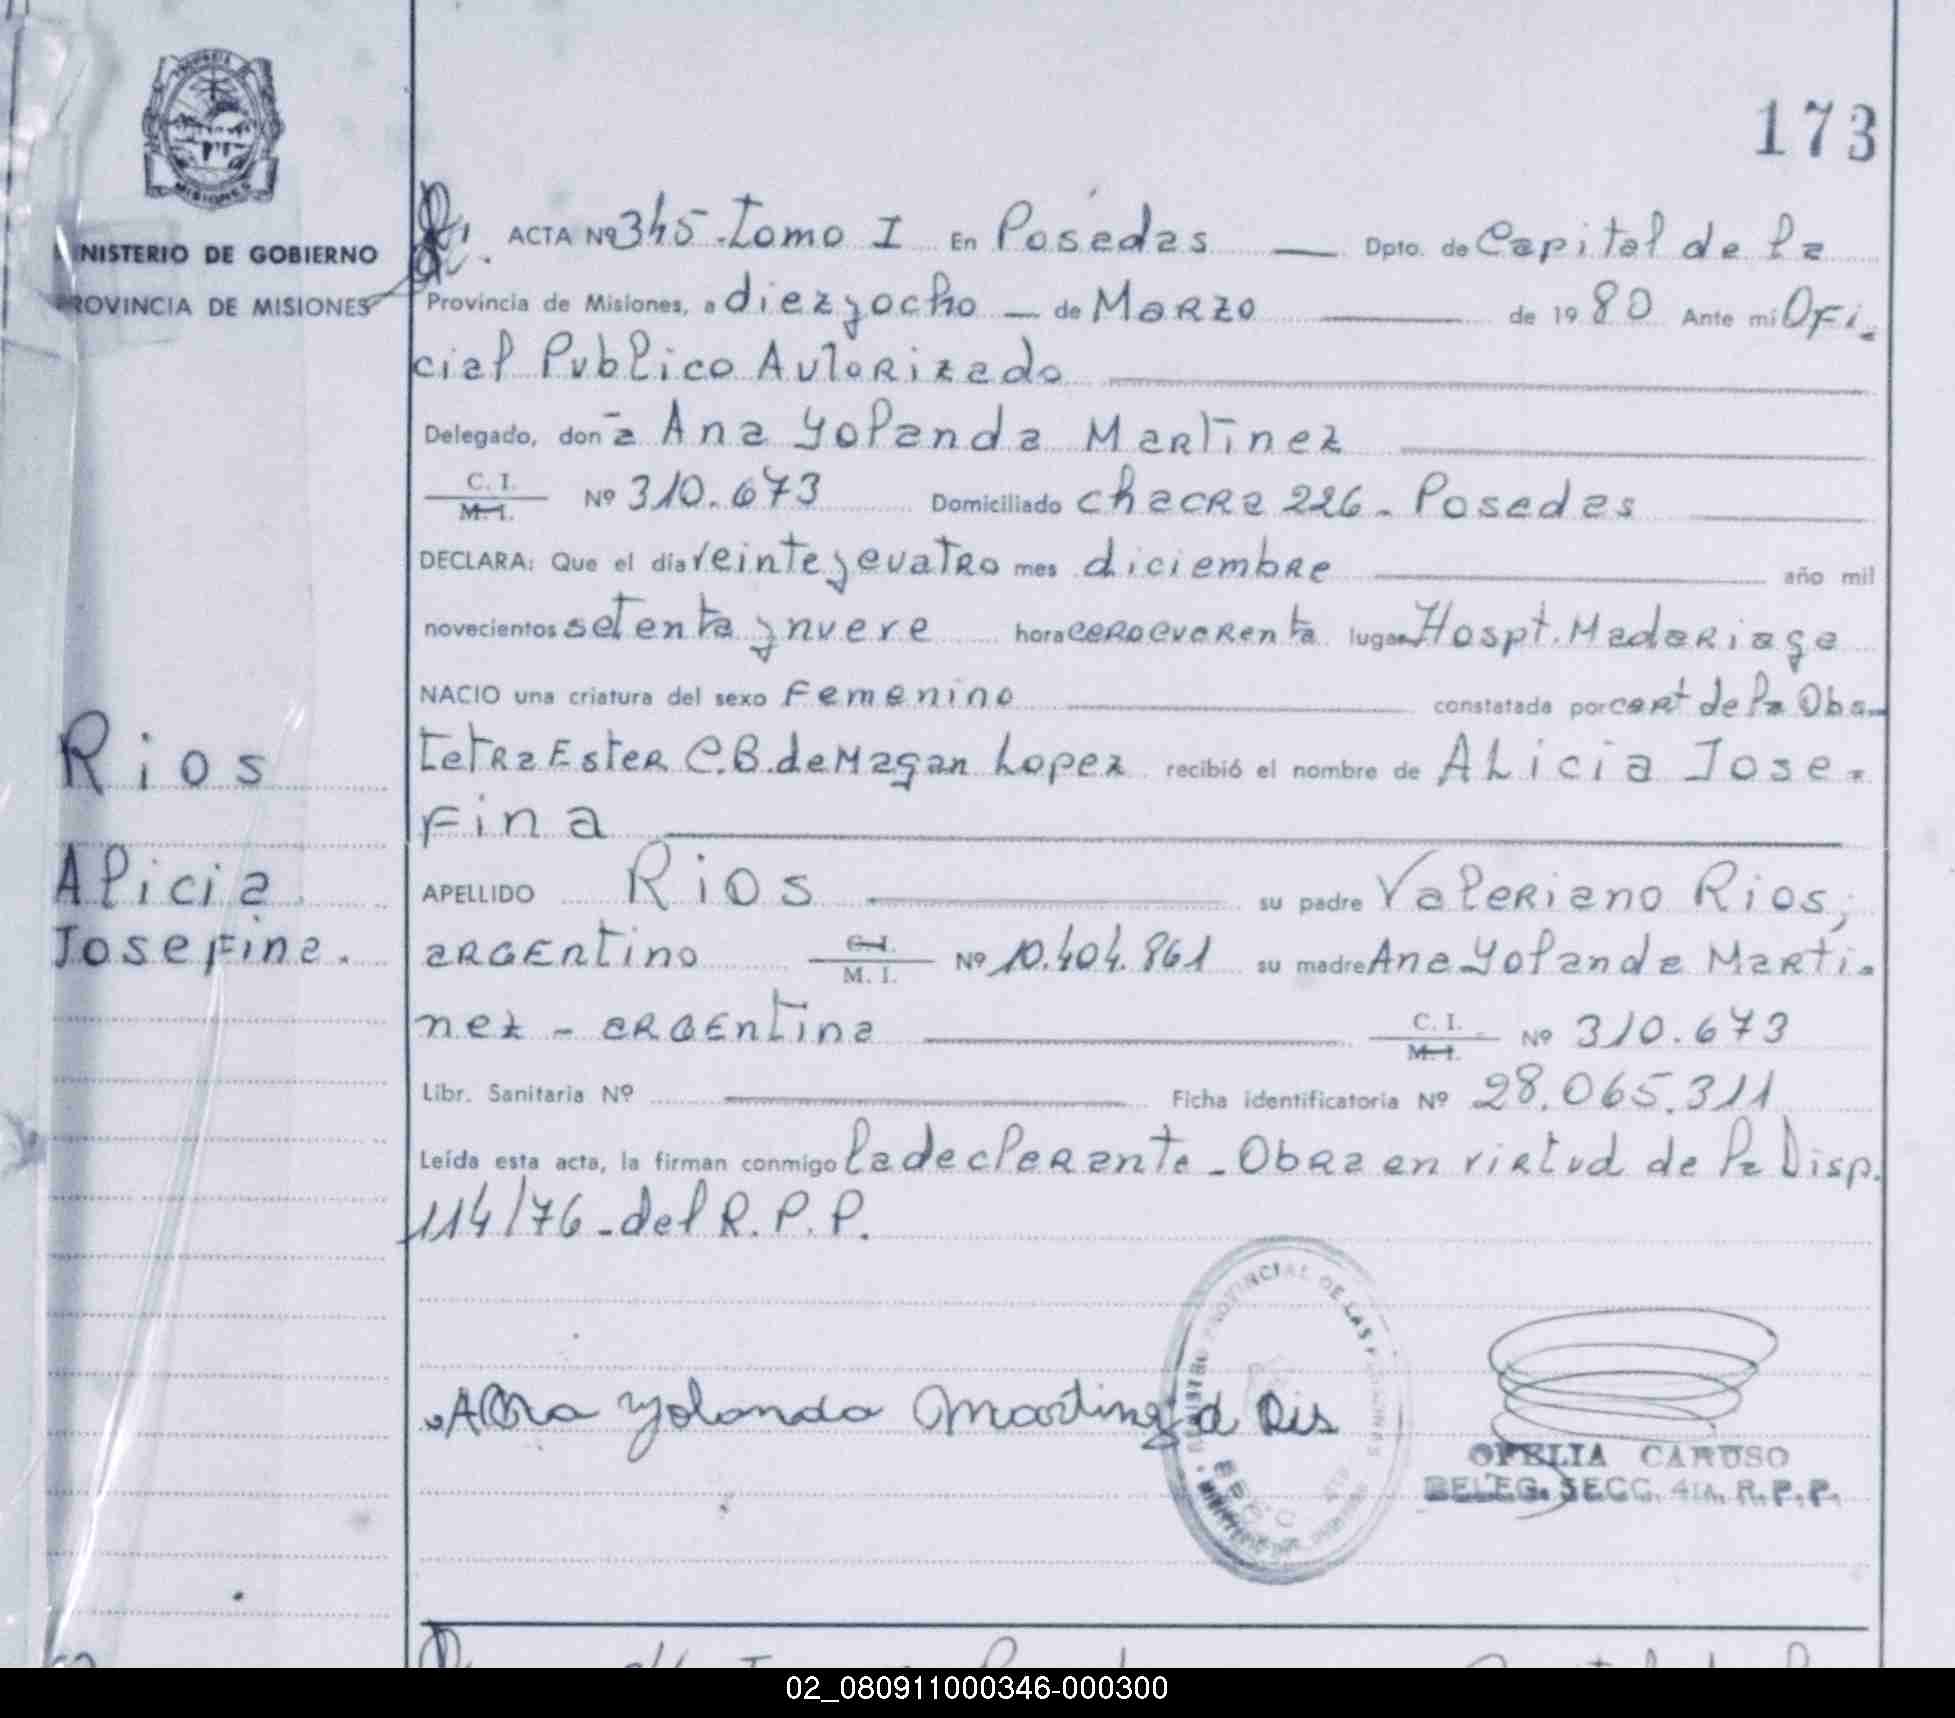 173
MISIONES
NISTERIO DE GOBIERNO
ROVINCIA DE MISIONES
ACTA Nº 345-Tomo I En Posadas — Dpto. de Capital de la
Provincia de Misiones, a diezyocho — de Marzo de 1980 Ante mi Ofi-
cial Publico Autorizado
Delegado, don a Ana Yolanda Martinez
C. I.
M. I. Nº 310.673 Domiciliado chacra 226 - Posadas
DECLARA: Que el día veinteycuatro mes diciembre año mil
novecientos setenta y nueve hora cerocuarenta lugar Hospt. Madariaga
NACIO una criatura del sexo Femenino constatada por cert de la Obs-
Rios
tetra Ester C.B. de Magan Lopez recibió el nombre de ALicia Jose-
fina
Alicia
APELLIDO Rios su padre Valeriano Rios,
Josefina.
argentino C. I.
M. I. Nº 10.404.861 su madre Ana Yolanda Marti-
nez - argentina C. I.
M. I. Nº 310.673
Libr. Sanitaria Nº Ficha identificatoria Nº 28.065.311
Leída esta acta, la firman conmigo la declarante - Obra en virtud de la Disp.
114/76 - del R.P.P.
PROVINCIAL DE LAS
Ana Yolanda Martinez d Ris
OFELIA CARUSO
DELEG. SECC. 4ta. R.P.P.
02_080911000346-000300